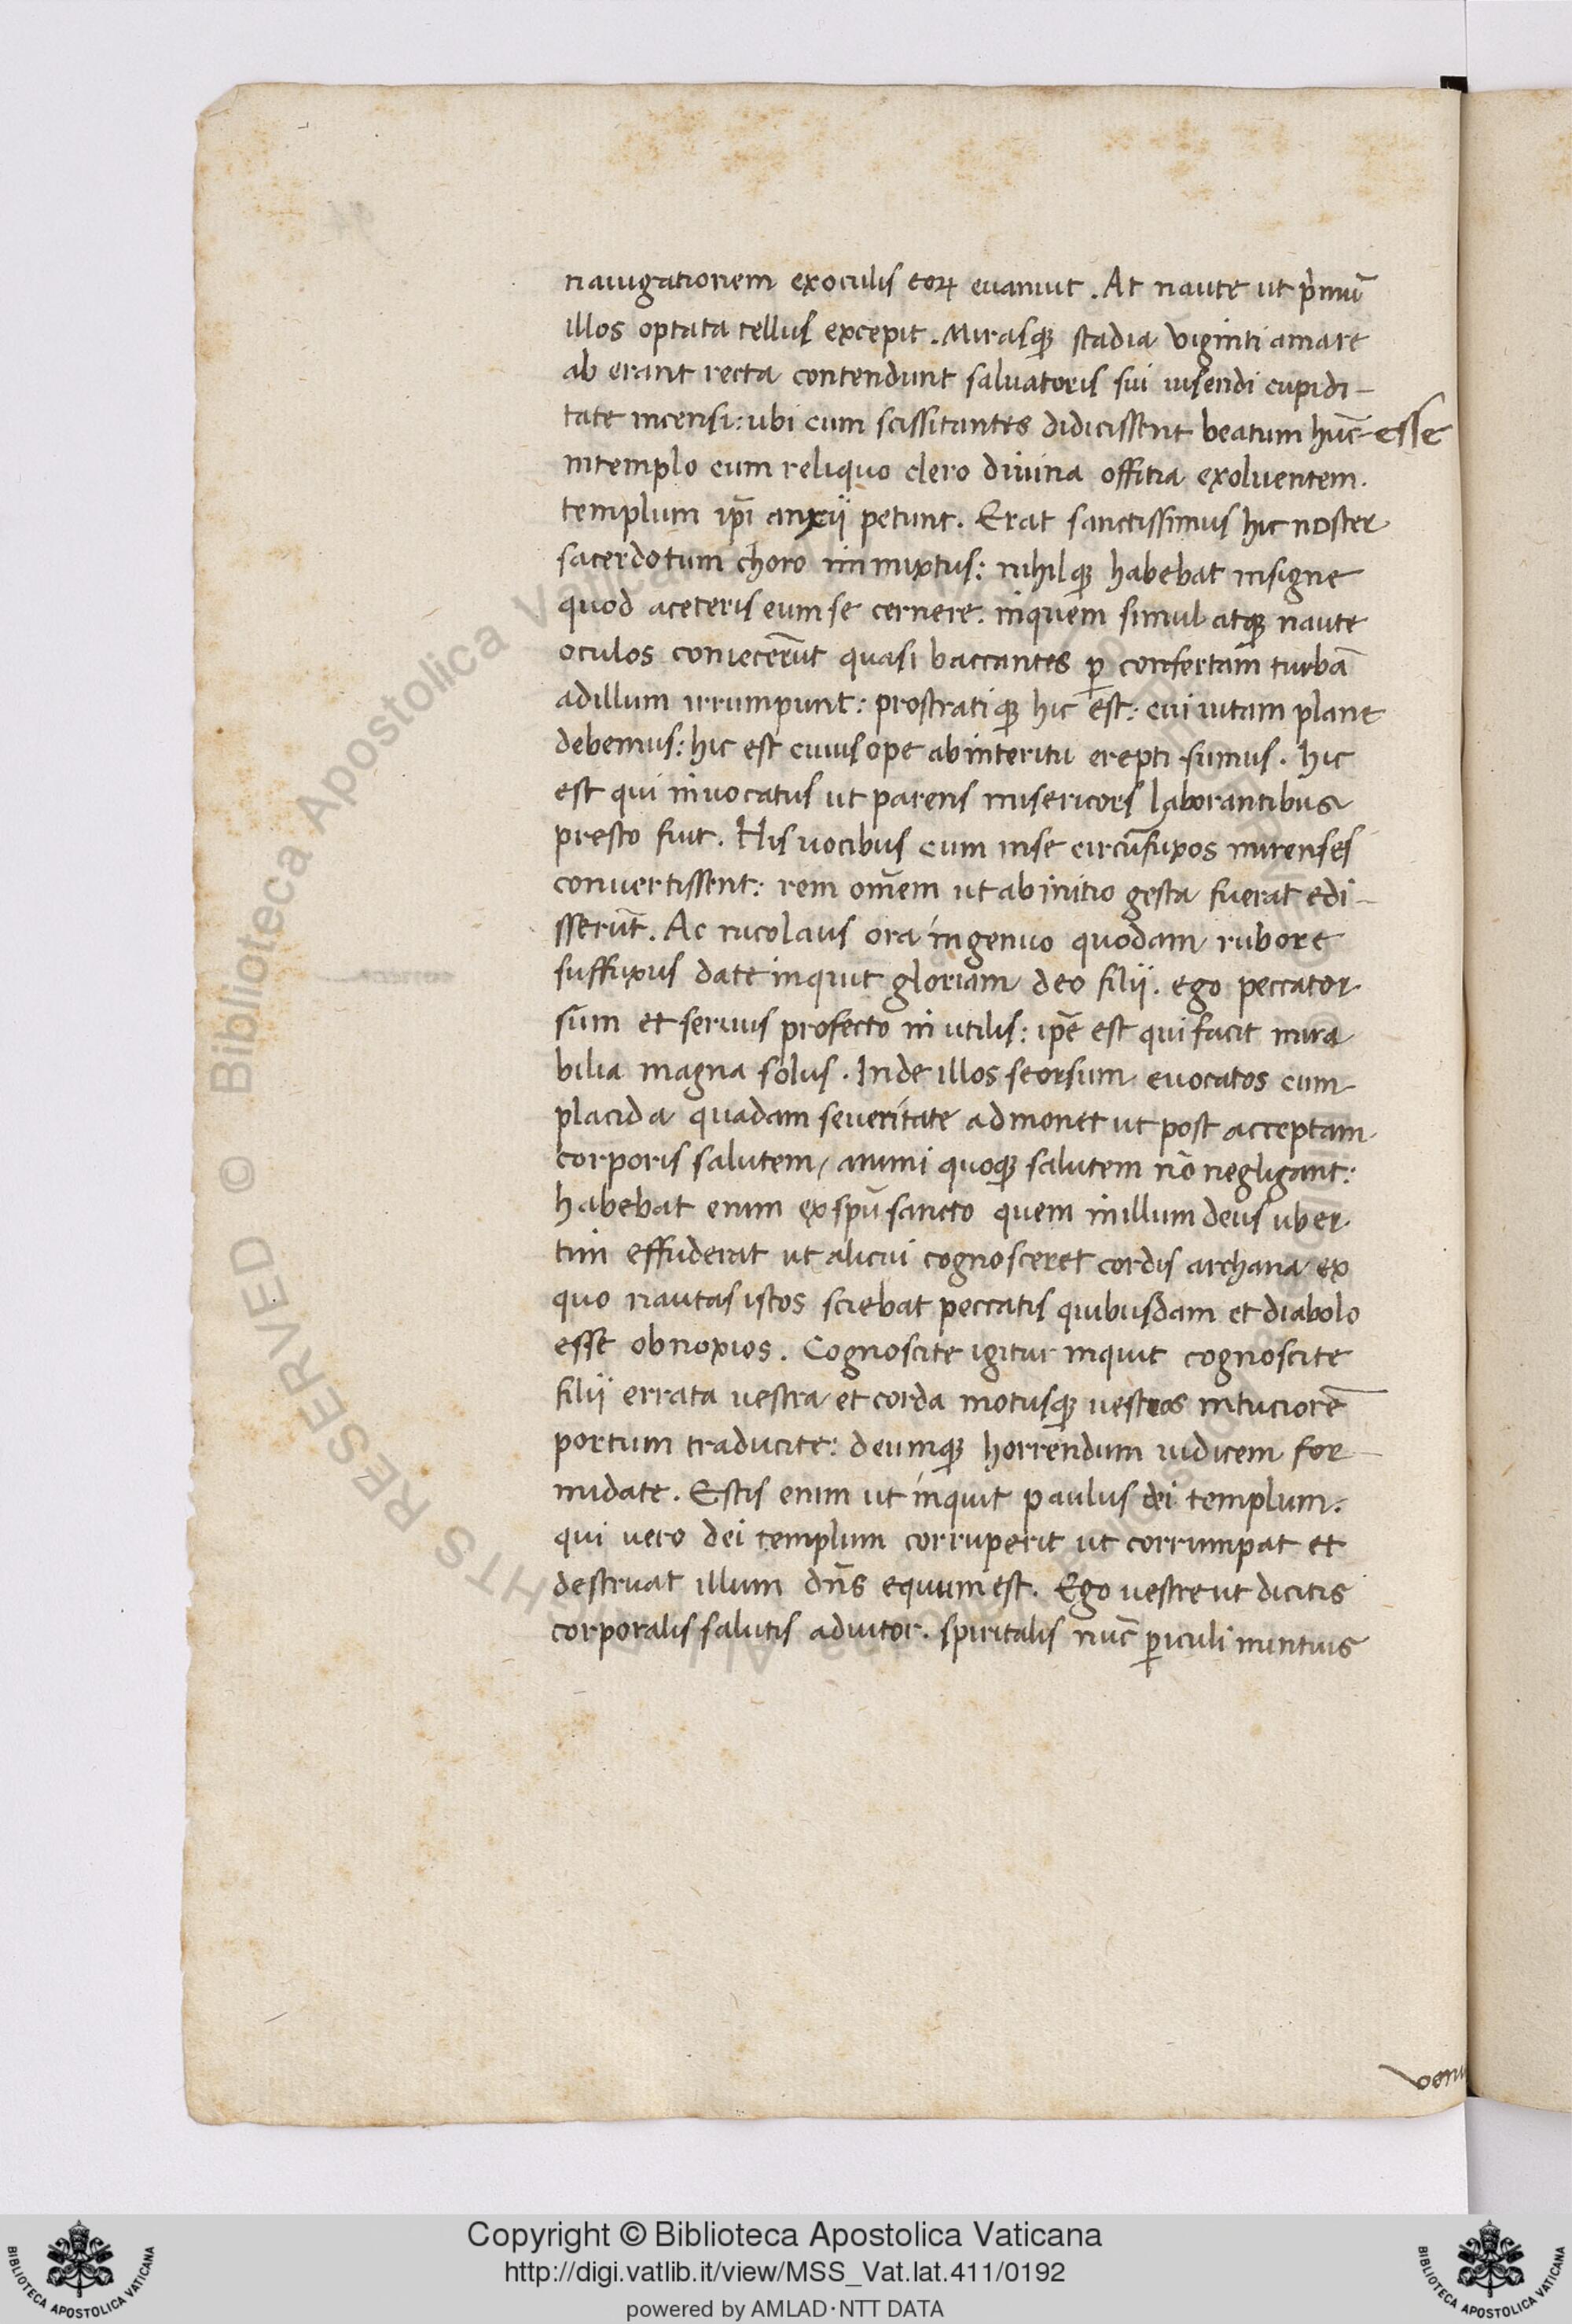 nauigationem exoculis eoꝝ euanuit. At naute ut pͥmū
illos optata tellus excepit. Mirasqꝫ stadia viginti amare
ab erant recta contendunt saluatoris sui uisendi cupidi-
tate incensi: ubi cum scissitantes didicissent beatum hūc esse
intemplo cum reliquo clero diuina offitia exoluentem.
templum ip̄i anxii petunt. Erat sanctissimus hic noster
sacerdotum choro immixtus: nihilqꝫ habebat insigne
quod aceteris eum se cernere: inquem simul atqꝫ naute
oculos coniecerūt quasi baccantes ꝑ confertam turbā
adillum irrumpunt: prostratiqꝫ hic est: cui uitam plane
debemus: hic est cuius ope abinteritu erepti sumus. hic
est qui inuocatus ut parens misericors laborantibus
presto fuit. His uocibus cum inse circūfuxos mirenses
conuertissent: rem om̄em ut abinitio gesta fuerat edi-
sserūt. Ac nicolaus ora ingenuo quodam rubore
suffuxus date inquit gloriam deo filii. ego peccator
sum et seruus profecto in utilis: ip̄e est qui facit mira
bilia magna solus. Inde illos seorsum euocatos cum
placida quadam seueritate admonet ut post acceptam
corporis salutem, animi quoqꝫ salutem nō negligant:
habebat enim exspū sancto quem inillum deus uber
tim effuderat ut alicui cognosceret cordis archana ex
quo nautas istos sciebat peccatis quibusdam et diabolo
esse obnoxios. Cognoscite igitur inquit cognoscite
filii errata uestra et corda motusqꝫ uestros intuciorē
portum traducite: deumqꝫ horrendum iudicem for-
midate. Estis enim ut inquit paulus dei templum:
qui uero dei templum corruperit ut corrumpat et
destruat illum dn̄s equum est. Ego uestre ut dicitis
corporalis salutis adiutor. spiritalis nūc ꝑiculi nuntius
Copyright © Biblioteca Apostolica Vaticana
http://digi.vatlib.it/view/MSS_Vat.lat.411/0192
powered by AMLAD·NTT DATA